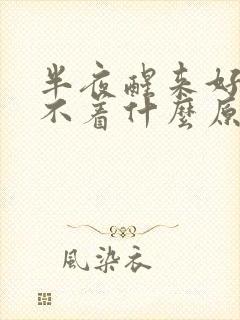 半夜醒来好
不着什麼原
風染衣